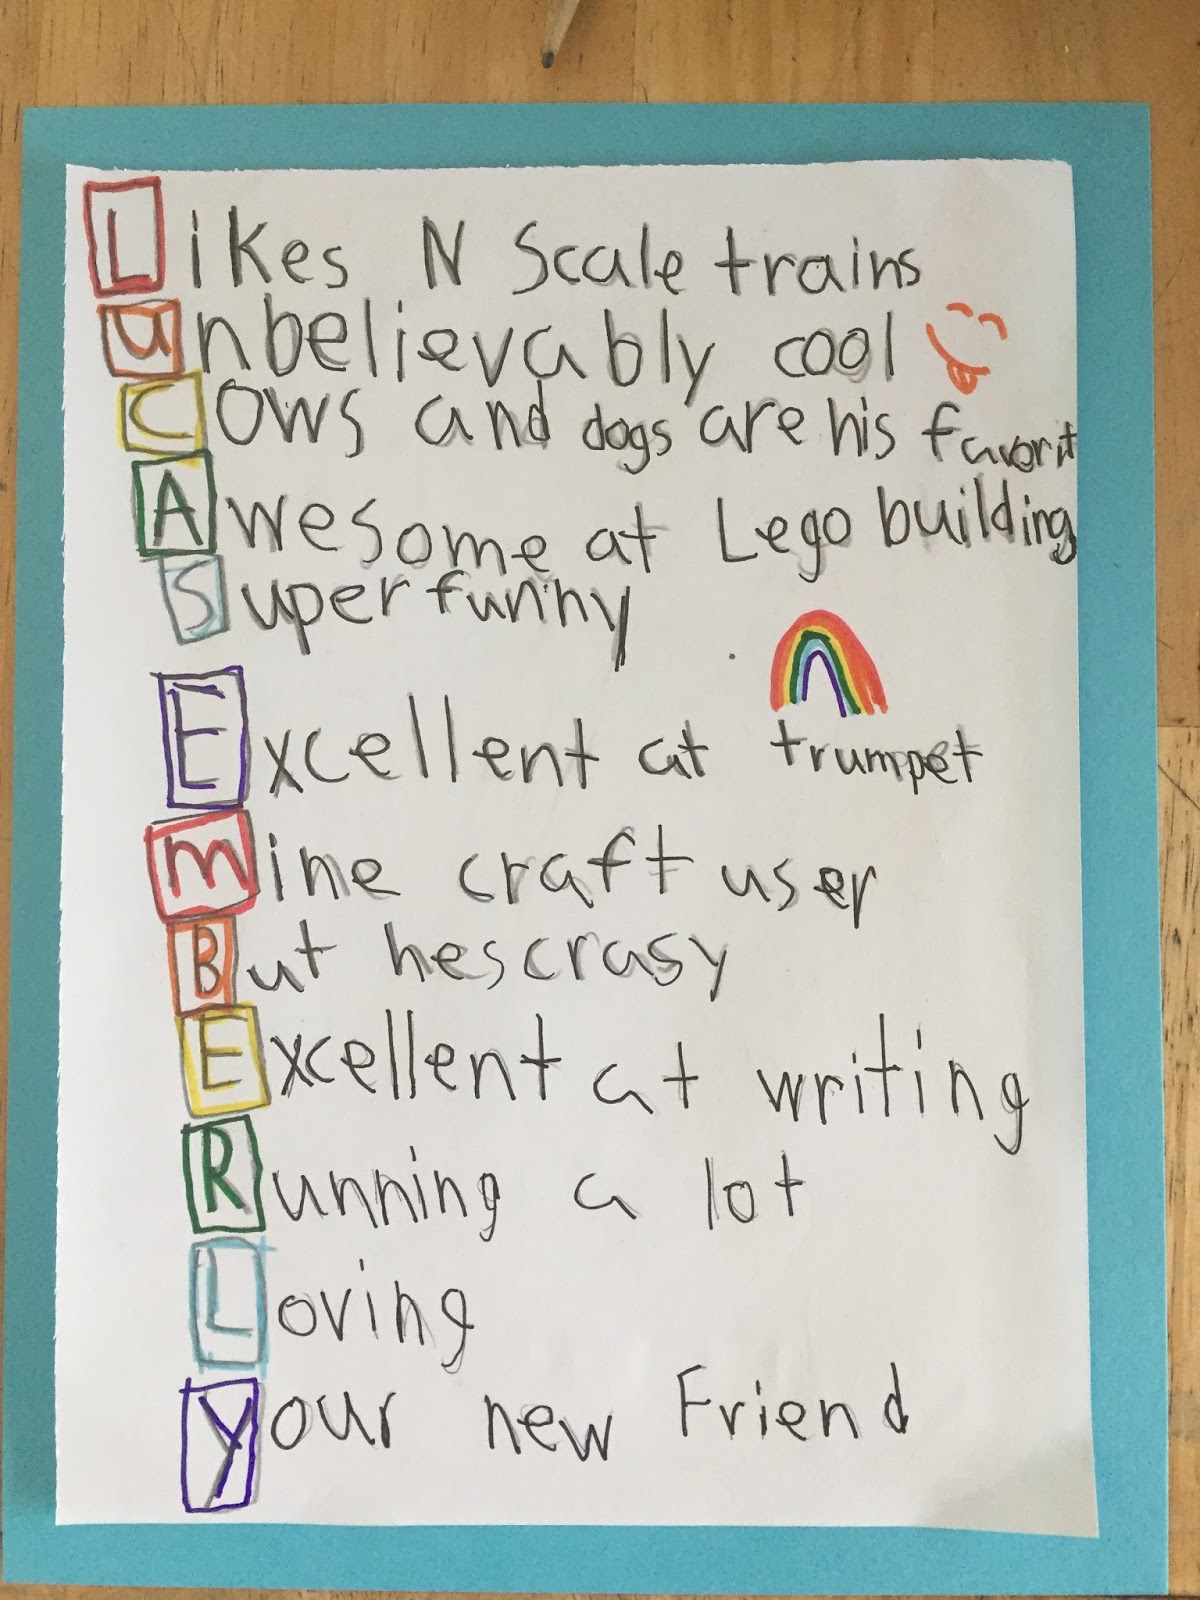 Likes N Scale trains
unbelievably cool
Cows and dogs are his favorit
Awesome at Lego building
Super funny
Excellent at trumpet
mine craft user
But hes crasy
Excellent at writing
Running a lot
Loving
Your new Friend